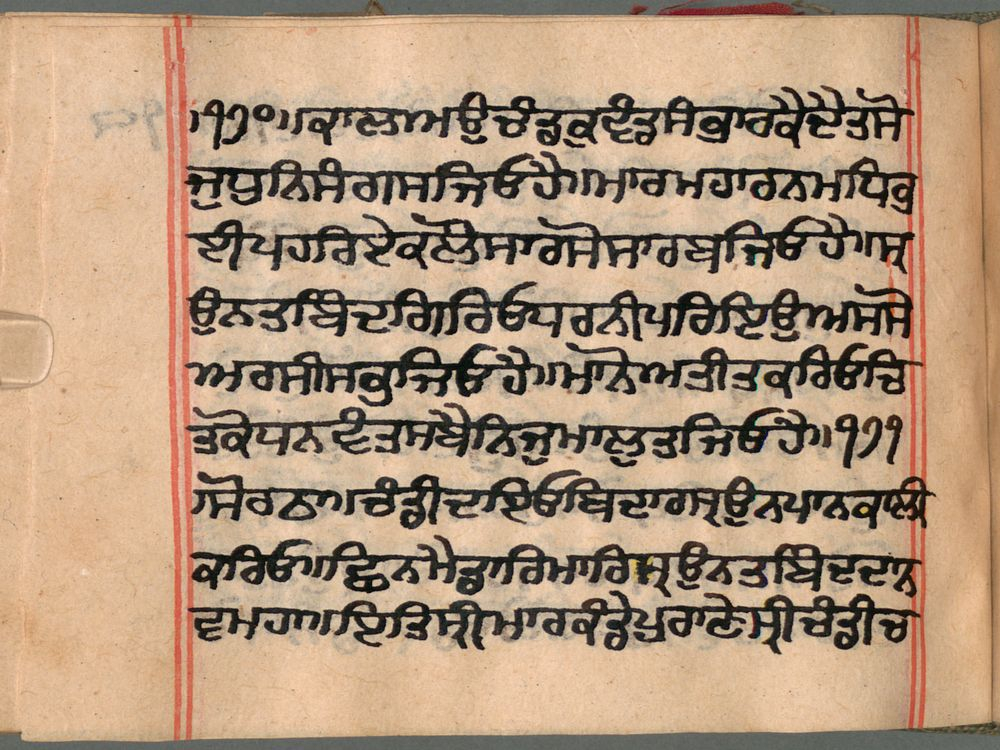 ॥੧੭੦॥ਕਾਲੀਅਉਚੰਡਕੁਵੰਡਸੰਭਾਰਕੈਦੈਤਸੋ
ਜੁਧੁਨਿਸੰਗਸਜਿਓਹੈ॥ਮਾਰਮਹਾਰਨਮਧਿਭ
ਈਪਹਰਿਏਕਲੌਸਾਰਸੋਸਾਰਬਜਿਓਹੈ॥ਸ੍ਰ
ਉਨਤਬਿੰਦਗਿਰਿਓਧਰਨੀਪਰਿਇਉਅਸਸੋ
ਅਰਸੀਸਭਜਿਓਹੈ॥ਮਾਨੋਅਤੀਤਕਰਿਓਚਿ
ਤਕੋਧਨਵੰਤਸਬੈਨਿਜੁਮਾਲੁਤਜਿਓਹੈ॥੧੭੧
॥ਸੋਰਠਾ॥ਚੰਡੀਦਇਓਬਿਦਾਰਸ੍ਰਉਨਪਾਨਕਾਲੀ
ਕਰਿਓ॥ਛਿਨਮੈਡਾਰਿਮਾਰਿਸ੍ਰਉਨਤਬਿੰਦਦਾਨ
ਵਮਹਾ॥ਇਤਿਸ੍ਰੀਮਾਰਕੰਡੇਪੁਰਾਣੇਸ੍ਰੀਚੰਡੀਚ